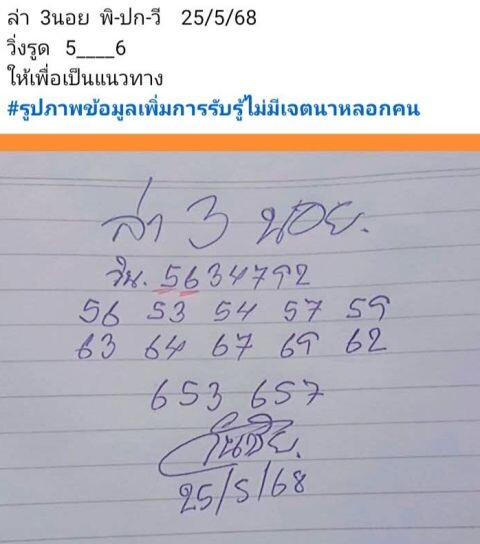 ล่า 3นอย พิ-ปก-วี 25/5/68
วิ่งรูด 5____6
ให้เพื่อเป็นแนวทาง
#รูปภาพข้อมูลเพิ่มการรับรู้ไม่มีเจตนาหลอกคน
ล่า 3 นอย.
วิน. 5634792
56 53 54 57 59
63 64 67 69 62
653 657
25/5/68